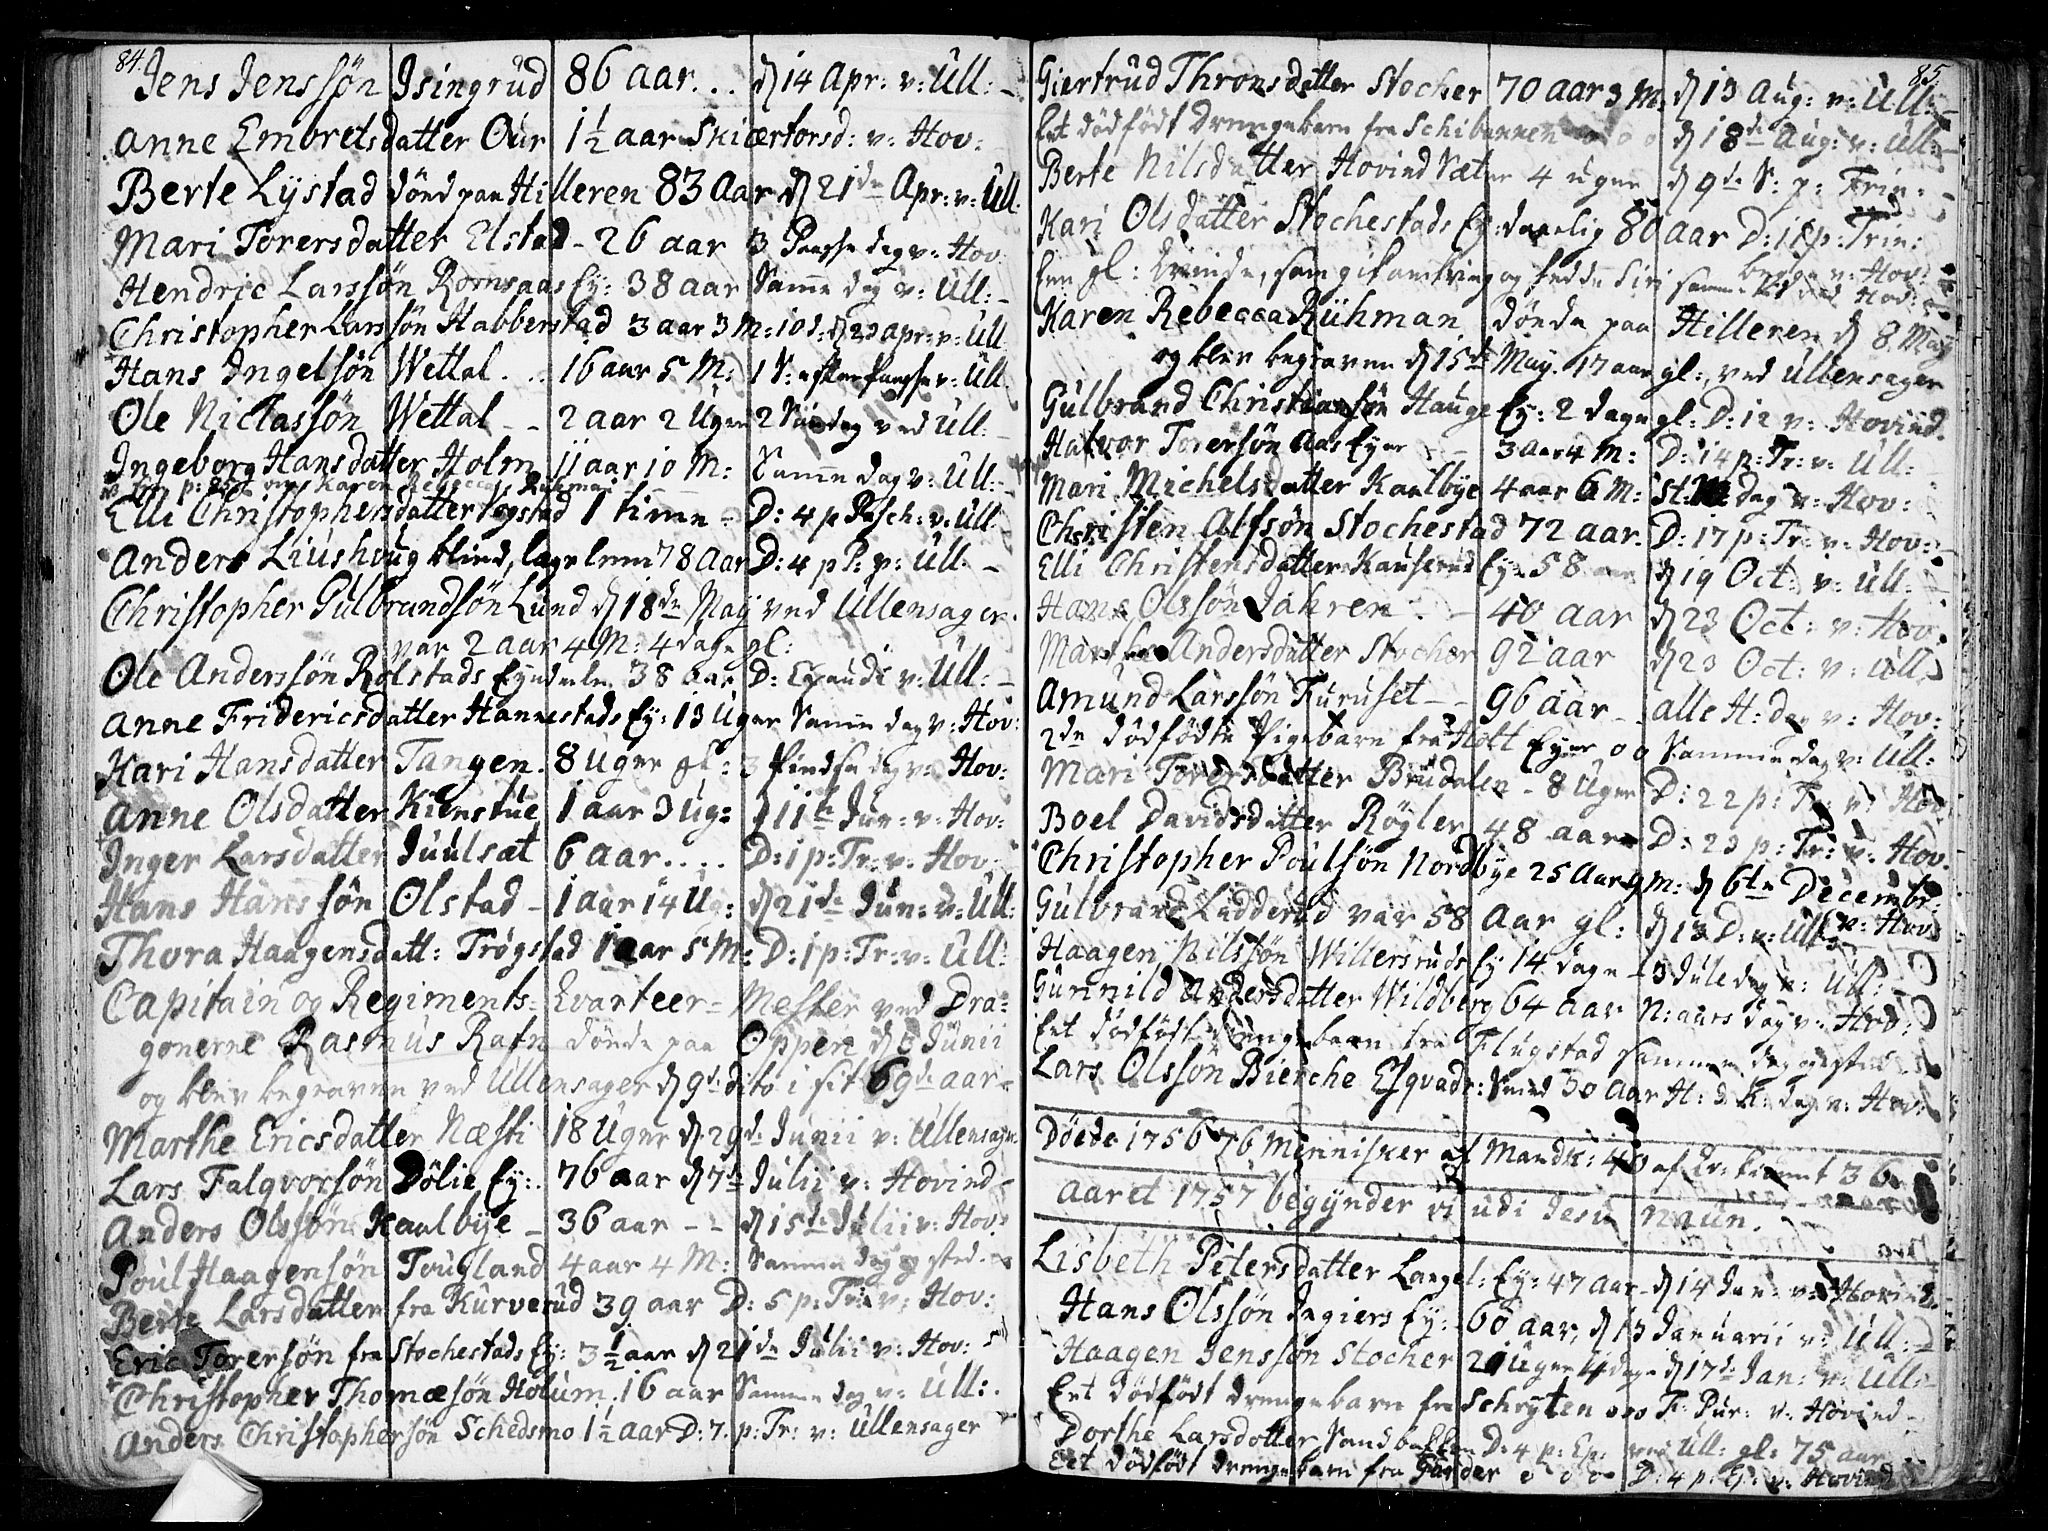 84.
Jens Jenssøn Isingrud 86 aar... d 14 Apr: v: Ull: -
Anne Embretsdatter Our 1½ aar Skiærtorsd: v: Hov:
Berte Lystad dönd paa Hilleren 83 Aar d 21de Apr: v: Ull.
Mari Torersdatter Elstad - 26 aar 3 Paaske dag v: Hov
Hendric Larssön Romsaas Ey: 38 aar Samme dag v: Ull: -
Christopher Larssön Habberstad 3 aar 3 M: 10 d: d 23 Apr: v: Ull
Hans Ingelsön Wettal ... 16 aar 5 M: 1 S: efter Paaske v: Ull.
Ole Niclassön Wettal - - 2 aar 2 Uger 2 Söndag ved Ull: -
Ingeborg Hansdatter Holm 11 aar 10 M: Samme dag v: Ull: -
p: 85 Karen Rebecca Ruhman
Elli Christophersdatter Vogstad 1 time - D: 4 p Pasch: v: Ull:
Anders Liushoug blind, lagelem 78 Aar D: 4 p P: v: Ull: -
Christopher Gulbrandsön Lund d 18de May ved Ullensager.
var 2 aar 4 M: 4 dage gl:
Ole Anderssön Rolstads Eyndeele 38 aar D: Exaudi v: Ull: -
Anne Fridericsdatter Hannestads Ey: 13 Uger Samme dag v: Hov:
Kari Hansdatter Tangen. 8 Uger gl: 3 Pindse dag v: Hov:
Anne Olsdatter Kienstue 1 aar 3 ug: d 11te Jun: v: Hov:
Inger Larsdatter Juulsæt 6 aar.... D: 1 p: Tr: v: Hov:
Hans Hanssön Olstad - 1 aar 14 Ug: d 21de Jun: v: Ull:
Thora Haagensdatt: Trøgstad 1 aar 5 M: D: 1 p: Tr: v: Ull:
Capitain og Regiments- Kvarteer- Mester ved Dra-
gonerne Rasmus Rafn dönde paa Opperi d 3 Junii
og blev begraven ved Ullensager d 9de dito i sit 69de aar -
Marthe Ericsdatter Næsti 18 Uger d 29de Junii v: Ullensager
Lars Falqvorsön Dölie Ey: 76 aar d 7de Julii v: Hovind -
Anders Olssön Kaalbye - 36 aar - - d 15de Julii v: Hov:
Poul Haagensön Tougland 4 aar 4 M: Samme dag og sted -
Berte Larsdatter fra Kurverud 39 aar D: 5 p: Tr: v: Hov:
Eric Torersön fra Stochestads Ey: 3½ aar d 21de Julii v: Hov:
Christopher Thomæsön Holum. 16 aar Samme dag v: Ull:.
Anders Christophersön Schedsmo 1½ aar D: 7. p: Tr: v: Ullensager
85
Giertrud Thronsdatter Stocher 70 aar 3 M. d 13 Aug: v: Ull: -
Eet dödfödt drengebarn fra Schibannen o o o d 18de Aug: v: Ull: -
Berte Nilsdatter Hovind Sæter 4 uger d 9de S: p: Trin: -
Kari Olsdatter Stochestads Ey: daarlig 80 aar D: 11 p: Trin:
Een gl: Qvinde, som gik omkring og hedde Siri samme tid ved Hov:
Karen Rebecca Rühman dönde paa Hilleren d 8 May
og blev begraven d 15de May. 17 aar gl:, ved Ullensager
Gulbrand Christiansön Hauge Ey: 2 dage gl: D: 12 v: Hovind.
Halvor Torersön Aas Eyer - - 3 aar 4 M: D: 14 p: Tr: v: Ull:
Mari Michelsdatter Kaalbye 4 aar 6 M: St: M: dag v: Hov:
Christen Alfsön Stochestad 72 aar. D: 17 p: Tr: v: Hov:
Elli Christensdatter Kauserud Ey: 58 aar d 19 Oct: v: Ull:
Hans Olssön Jahren - - 40 aar d 23 Oct: v: Hov:
Marthe Andersdatter Stocher 92 aar d 23 Oct: v: Ull:
Amund Larssön Furuset - - 96 aar - - alle H: dag v: Hov:
2de dödfödte Pigebarn fra Holt Eyer o o Samme dag v: Ull:
Mari Torersdatter Brudalen - 8 Uger D: 22 p: Tr: v: Hov
Boel Davidsdatter Røgler 48 aar D: 23 p: Tr: v: Hov.
Christopher Poulsön Nordbye 25 Aar 9 M: d 6te Decembr: v: Hov:
Gulbrand Lidderud var 58 Aar gl: d 13 D: v: Ull:
Haagen Nilssön Willersruds Ey 14 dage - 3 Jule dag v: Ull:
Gunnild Andersdatter Wildberg 64 aar N: aars dag v: Hov:
Eet dödfödt drengebarn fra Flugstad samme dag og sted
Lars Olssön Bierche Esqvadr: Smed 30 Aar H: 3 K: dag v: Hov:
Döede 1756 76 Mennisker af Mandk: 40 af Qv: kiönnet 36
Aaret 1757 begynder vi udi Jesu Naun.
Lisbeth Petersdatter Langel: Ey: 47 aar - d 14 Jan: v: Hovind.
Hans Olssön Ingiers Ey: - 60 aar, d 13 Januarii v: Ull: -
Haagen Jenssön Stocher 21 Uger 4 dage d 17de Jan: v: Ull: -
Eet dödfödt drengebarn fra Schryten ooo F: Pur: v: Hovind -
Dorthe Larsdotter Sandbatten D: 4 p: Ep: ved Ull: gl: 75 aar
Eet dödfödt drengebarn fra Garder o o o D: 4 p: Ep: v: Hovind